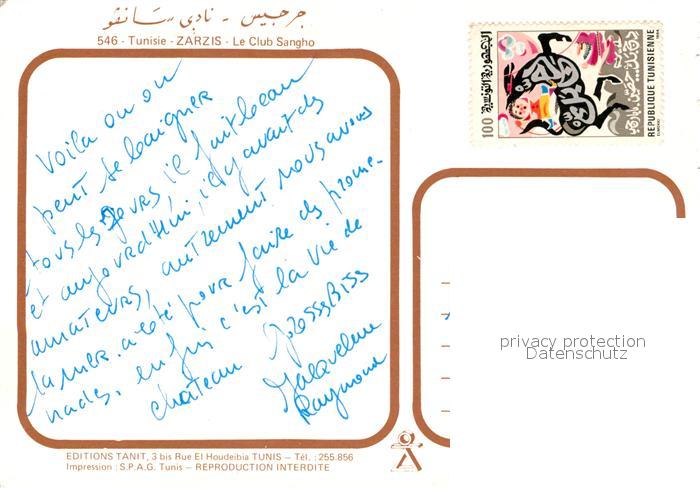 جرجيس - نادي سانغو
546 - Tunisie - ZARZIS - Le Club Sangho
Voila ou on
peut se baigner
tous les jours, il fait beau
et aujourd'hui, il y avait des
amateurs, autrement nous avons
la mer à côté pour faire des prome-
nades. enfin c'est la vie de
château Grosses Biss
Jacqueline
Raymond
100
الجمهورية التونسية
REPUBLIQUE TUNISIENNE
privacy protection
Datenschutz
EDITIONS TANIT, 3 bis Rue El Houdeibia TUNIS - Tél. : 255.856
Impression : S.P.A.G. Tunis - REPRODUCTION INTERDITE